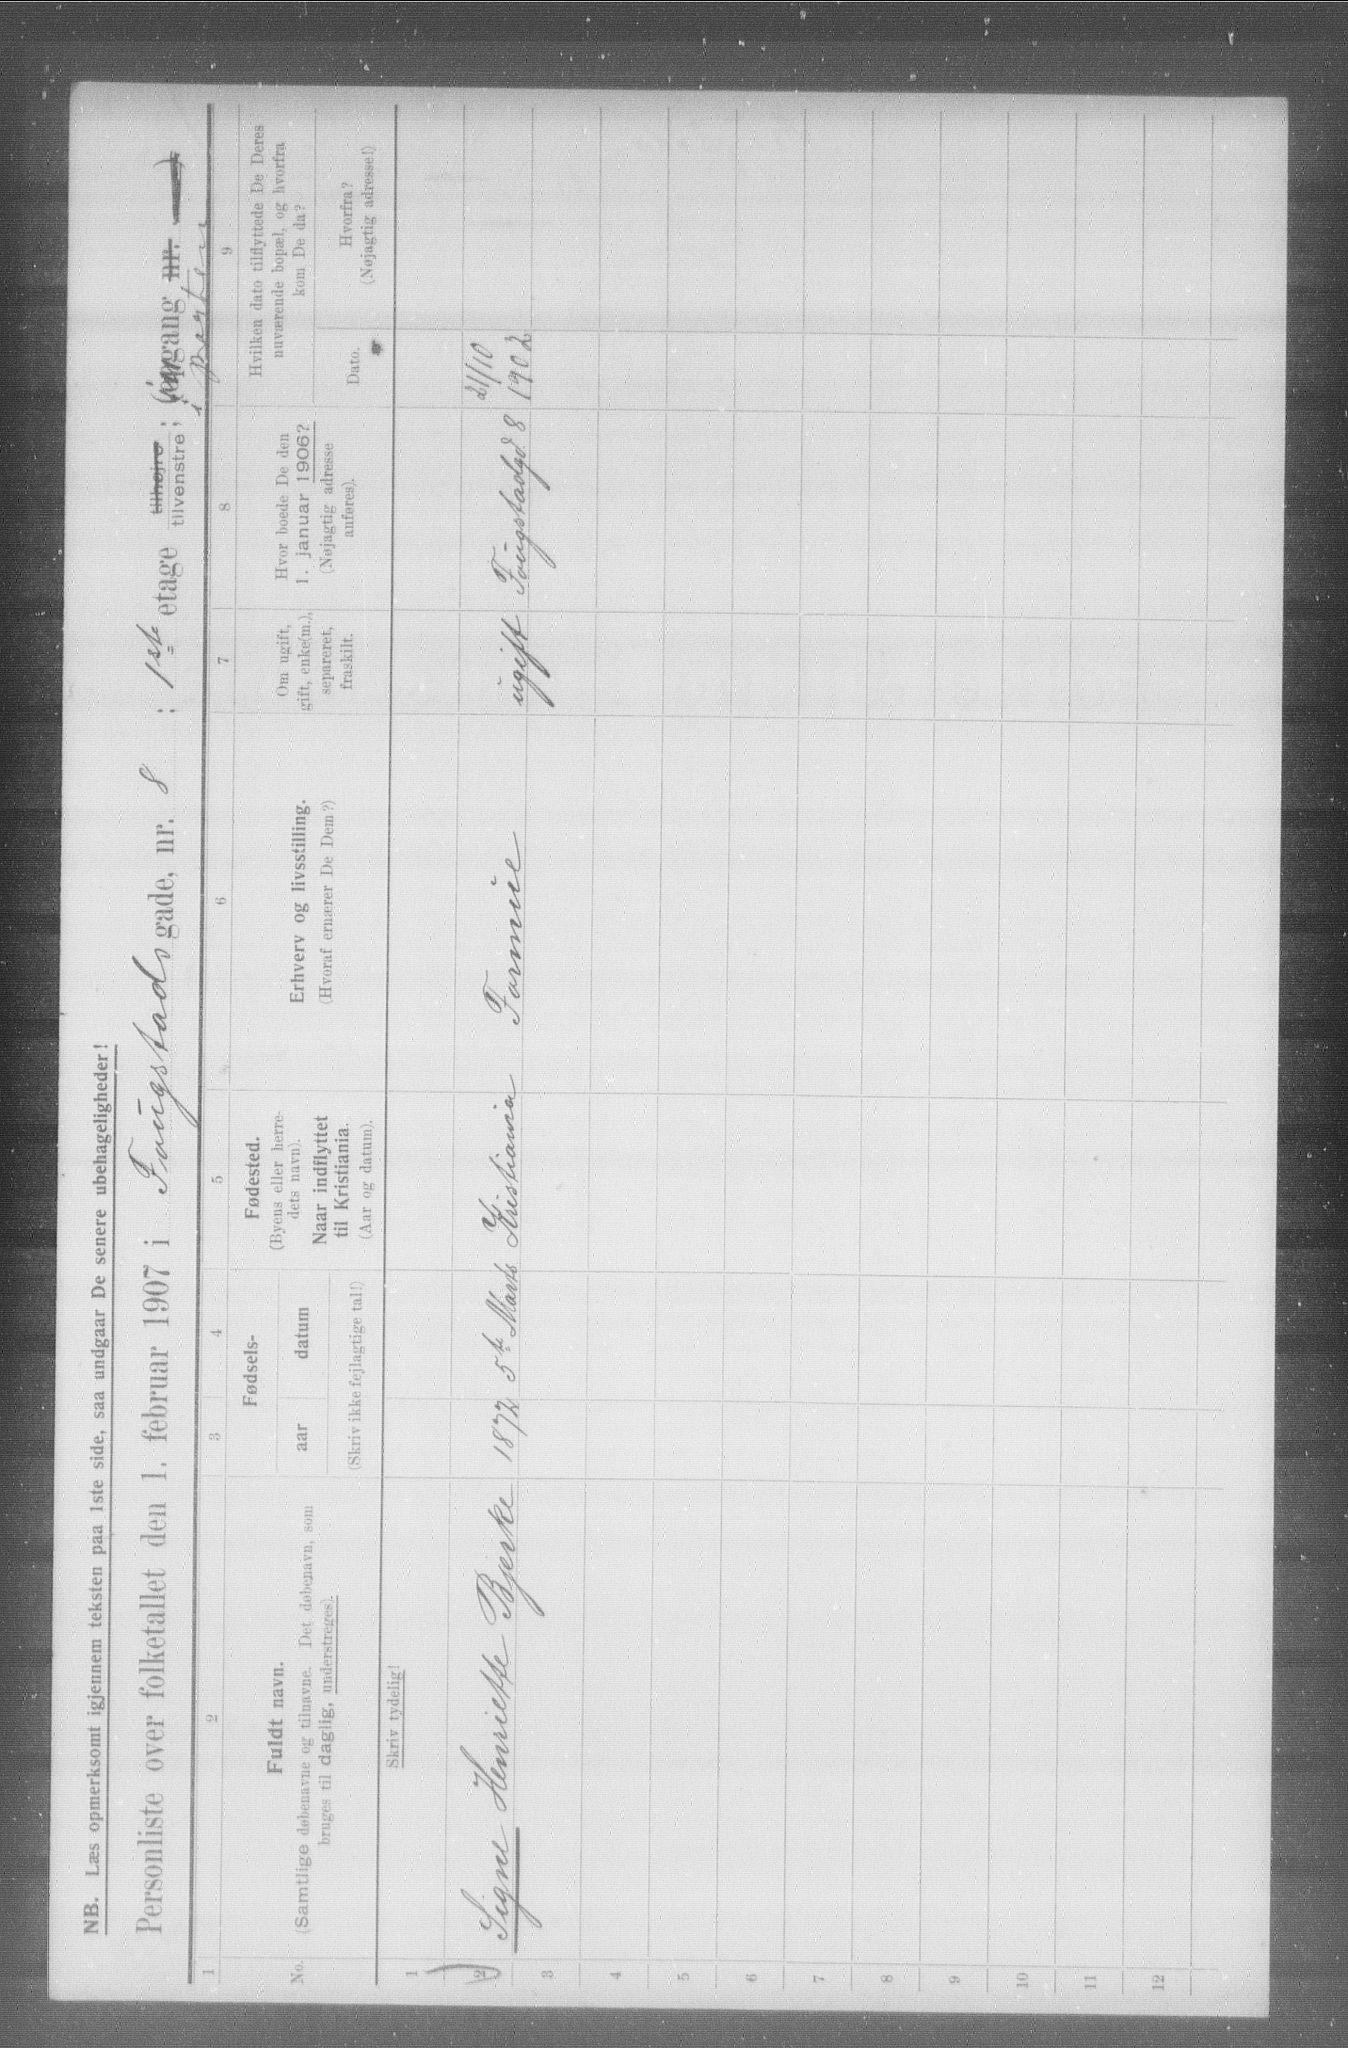 NB. Læs opmerksomt igjennem teksten paa 1ste side, saa undgaar De senere ubehageligheder!
Personliste over folketallet den 1. februar 1907 i Faugstads gade, nr. 8 ; 1ste etage tilhøjre tilvenstre ; (opgang nr.
i porten
1 2 3 4 5 6 7 8 9
No.
Fuldt navn.
(Samtlige døbenavne og tilnavne. Det døbenavn, som
bruges til daglig, understreges).
Fødsels-
aar datum
(Skriv ikke fejlagtige tal!)
Fødested.
(Byens eller herre-
dets navn).
Naar indflyttet
til Kristiania.
(Aar og datum).
Erhverv og livsstilling.
(Hvoraf ernærer De Dem?)
Om ugift,
gift, enke(m.),
separeret,
fraskilt.
Hvor boede De den
1. januar 1906?
(Nøjagtig adresse
anføres).
Hvilken dato tilflyttede De Deres
nuværende bopæl, og hvorfra
kom De da?
Dato.
Hvorfra?
(Nøjagtig adresse!)
Skriv tydelig!
1
2 Signe Henriette Bjerke 1872 5te Marts Kristiania ugift Faugstadgd 8 21/10
1902
3
4
5
6
7
8
9
10
11
12